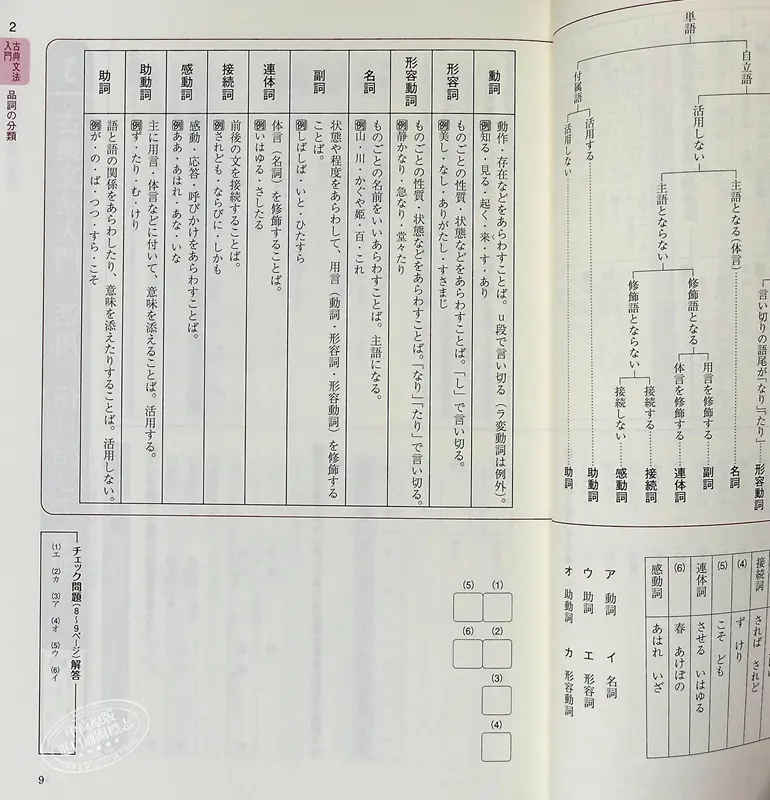 単語
自立語
付属語
活用しない
活用する
活用しない
「言い切りの語尾が「なり」「たり」
形容動詞
主語となる(体言)
名詞
主語とならない
修飾語となる
用言を修飾する
副詞
体言を修飾する
連体詞
修飾語とならない
接続する
接続詞
接続しない
感動詞
助動詞
助詞
接続詞
されば されど
(4)
ず けり
(5)
こそ ども
連体詞
させる いはゆる
(6)
春 あけぼの
感動詞
あはれ いざ
ア 動詞 イ 名詞
ウ 助詞 エ 形容詞
オ 助動詞 カ 形容動詞
2
古典文法入門
品詞の分類
動詞
動作・存在などをあらわすことば。u段で言い切る(ラ変動詞は例外)。
例知る・見る・起く・来・す・あり
形容詞
ものごとの性質・状態などをあらわすことば。「し」で言い切る。
例美し・なし・ありがたし・すさまじ
形容動詞
ものごとの性質・状態などをあらわすことば。「なり」「たり」で言い切る。
例静かなり・急なり・堂々たり
名詞
ものごとの名前をいいあらわすことば。主語になる。
例山・川・かぐや姫・百・これ
副詞
状態や程度をあらわして、用言(動詞・形容詞・形容動詞)を修飾する
ことば。
例しばしば・いと・ひたすら
連体詞
体言(名詞)を修飾することば。
例いはゆる・さしたる
接続詞
前後の文を接続することば。
例されども・ならびに・しかも
感動詞
感動・応答・呼びかけをあらわすことば。
例ああ・あはれ・あな・いな
助動詞
主に用言・体言などに付いて、意味を添えることば。活用する。
例ず・たり・む・けり
助詞
語と語の関係をあらわしたり、意味を添えたりすることば。活用しない。
例が・の・ば・つつ・すら・こそ
(1)
(2)
(3)
(4)
(5)
(6)
チェック問題(8〜9ページ)解答
(1)エ (2)カ (3)ア (4)オ (5)ウ (6)イ
9